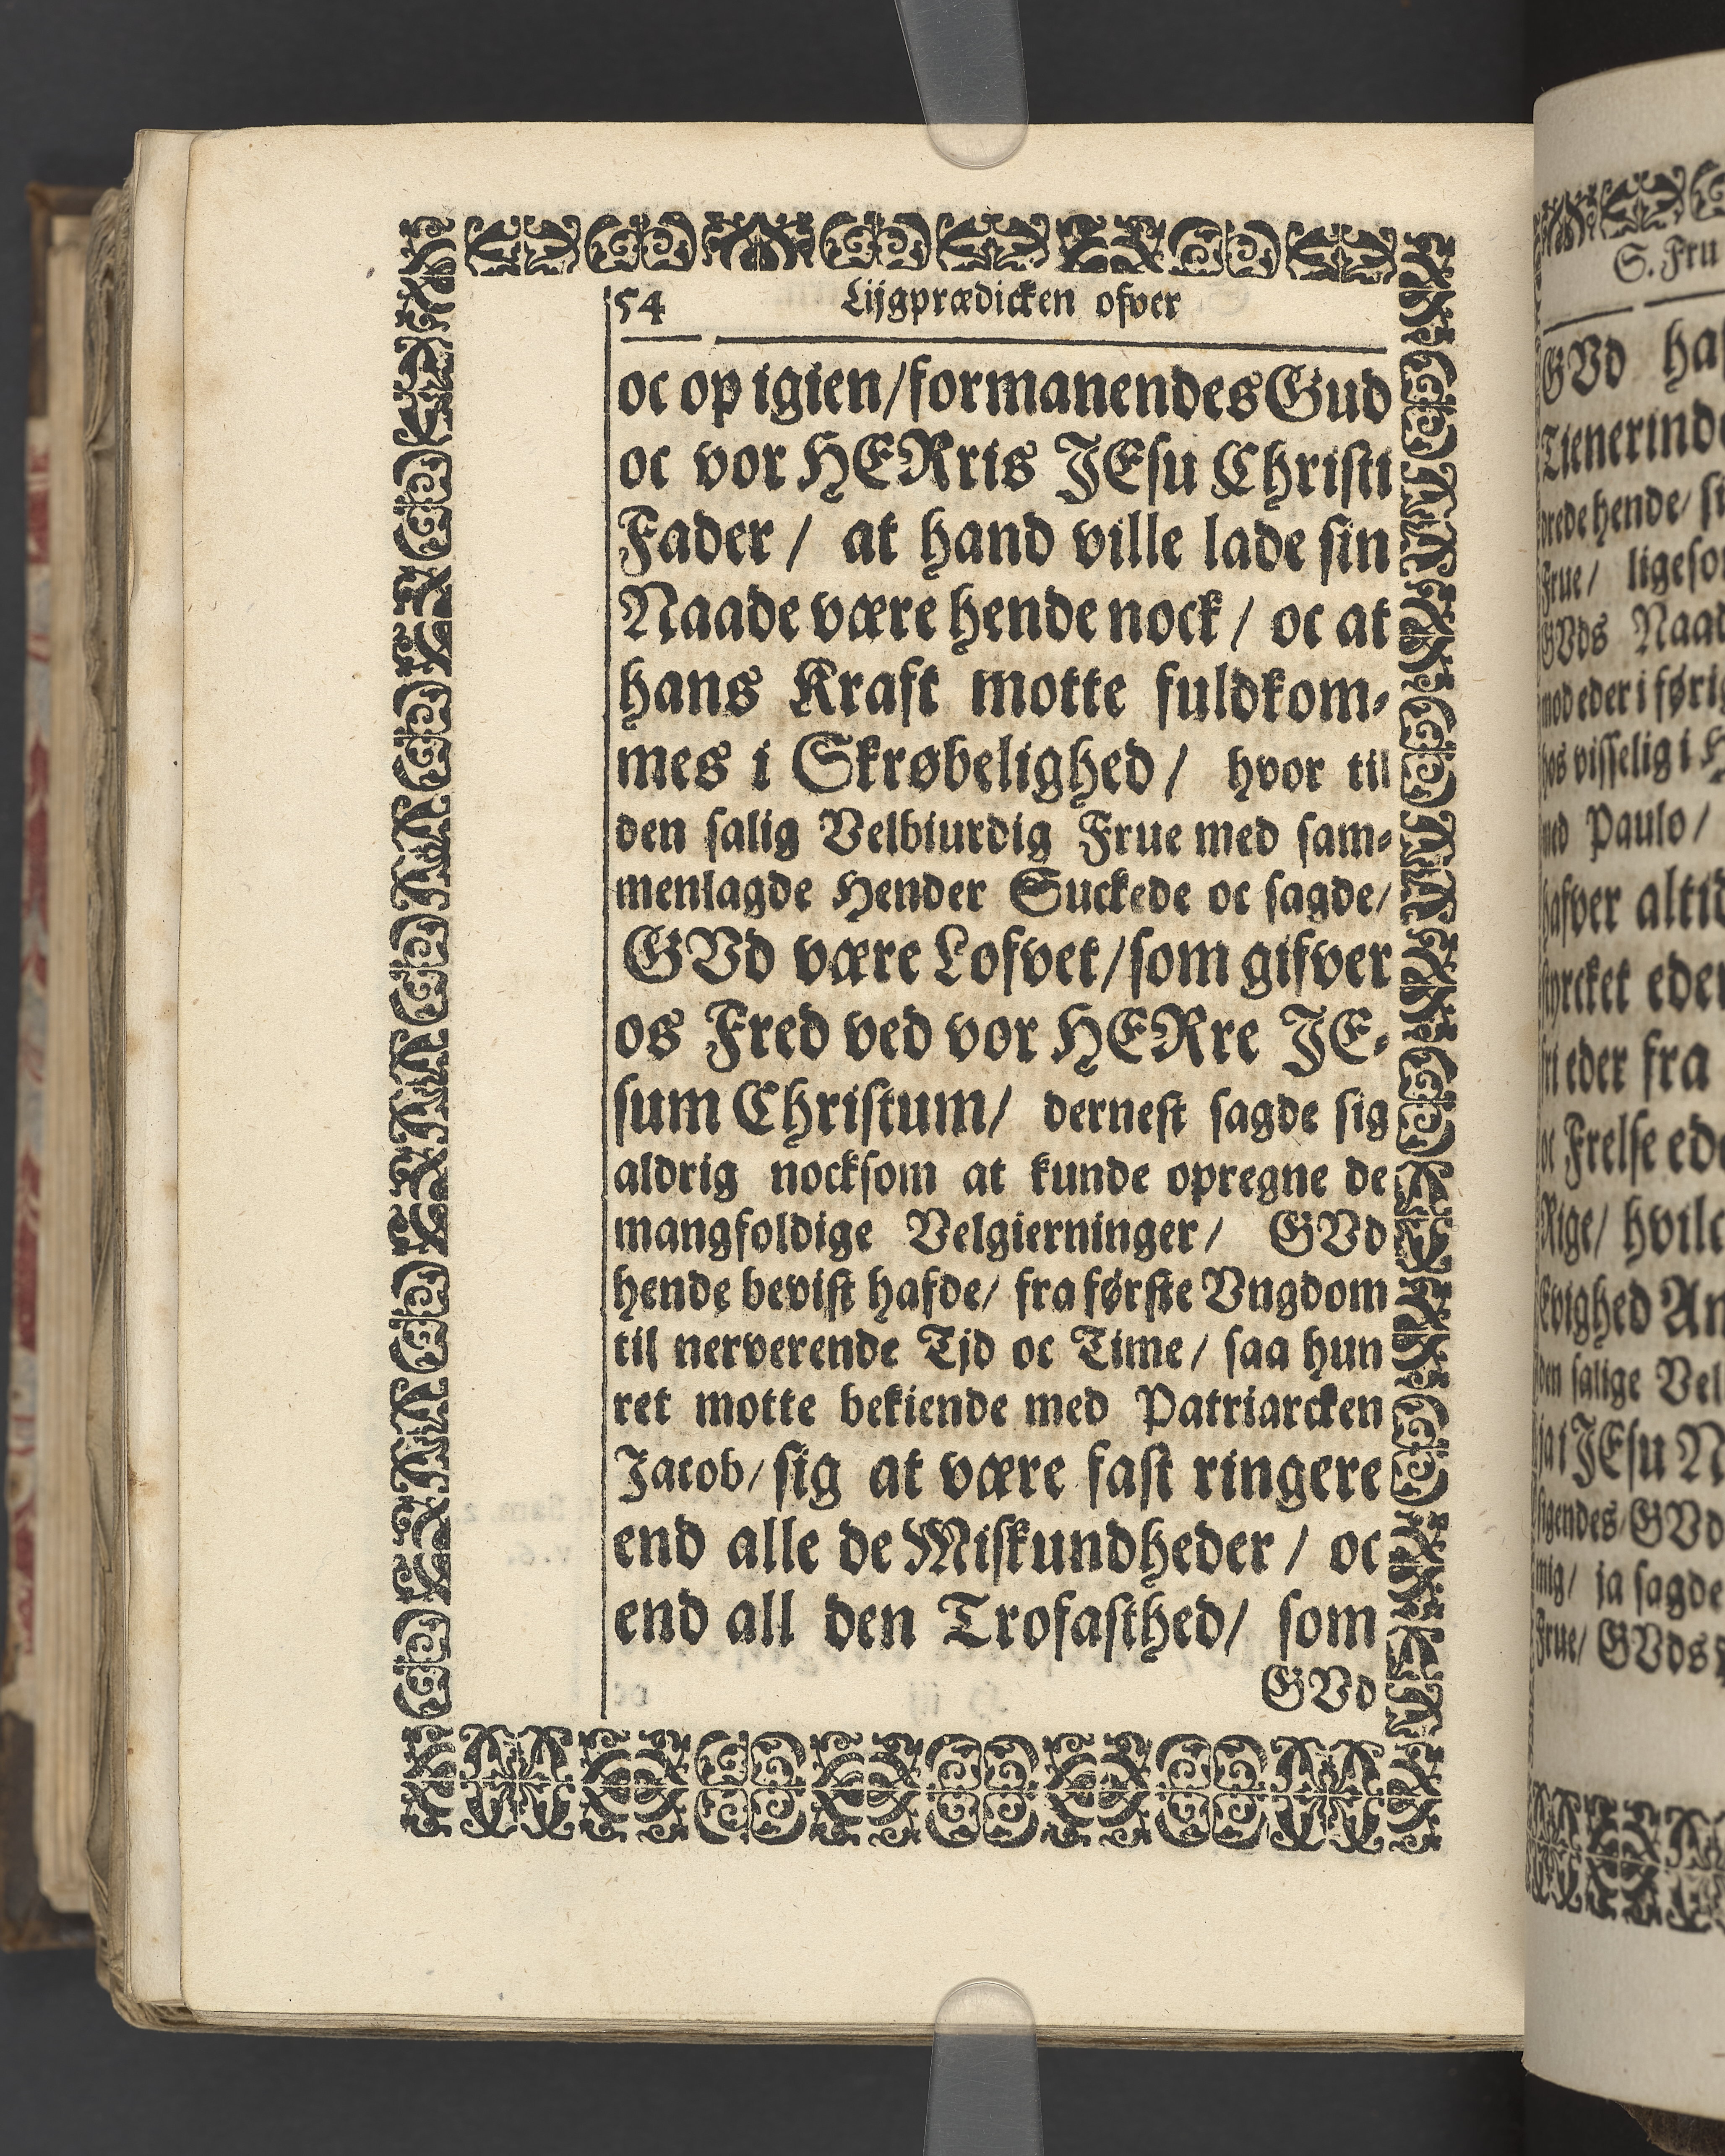 54 Lijgprædicken ofver
oc op igien/formanendes Gud
oc vor HERris JEsu Christi
Fader / at hand ville lade sin
Naade være hende nock / oc at
hans Kraft motte fuldkom-
mes i Skrøbelighed / hvor til
den salig Velbiurdig Frue med sam-
menlagde Hender Suckede oc sagde/
GVd være Lofvet/som gifver
os Fred ved vor HERre JE-
sum Christum/ dernest sagde sig
aldrig nocksom at kunde opregne de
mangfoldige Velgierninger/ GVd
hende bevist hafde/ fra første Vngdom
til nerverende Tjd oc Time/ saa hun
ret motte bekiende med Patriarcken
Jacob/ sig at være fast ringere
end alle de Miskundheder / oc
end all den Trofasthed/ som
GVd
S. Fru
GVd
Tienerind
rede hende/
Frue/ ligeso
GVds Naad
mod eder i førig
hos visselig i
med Paulo /
hafver altid
styrcket eder
fri eder fra
oc Frelse ede
Rige/ hvilc
Evighed
den salige Vel
ja i JEsu
sigendes/GVd
mig/ ja sagde
Frue/ GVds